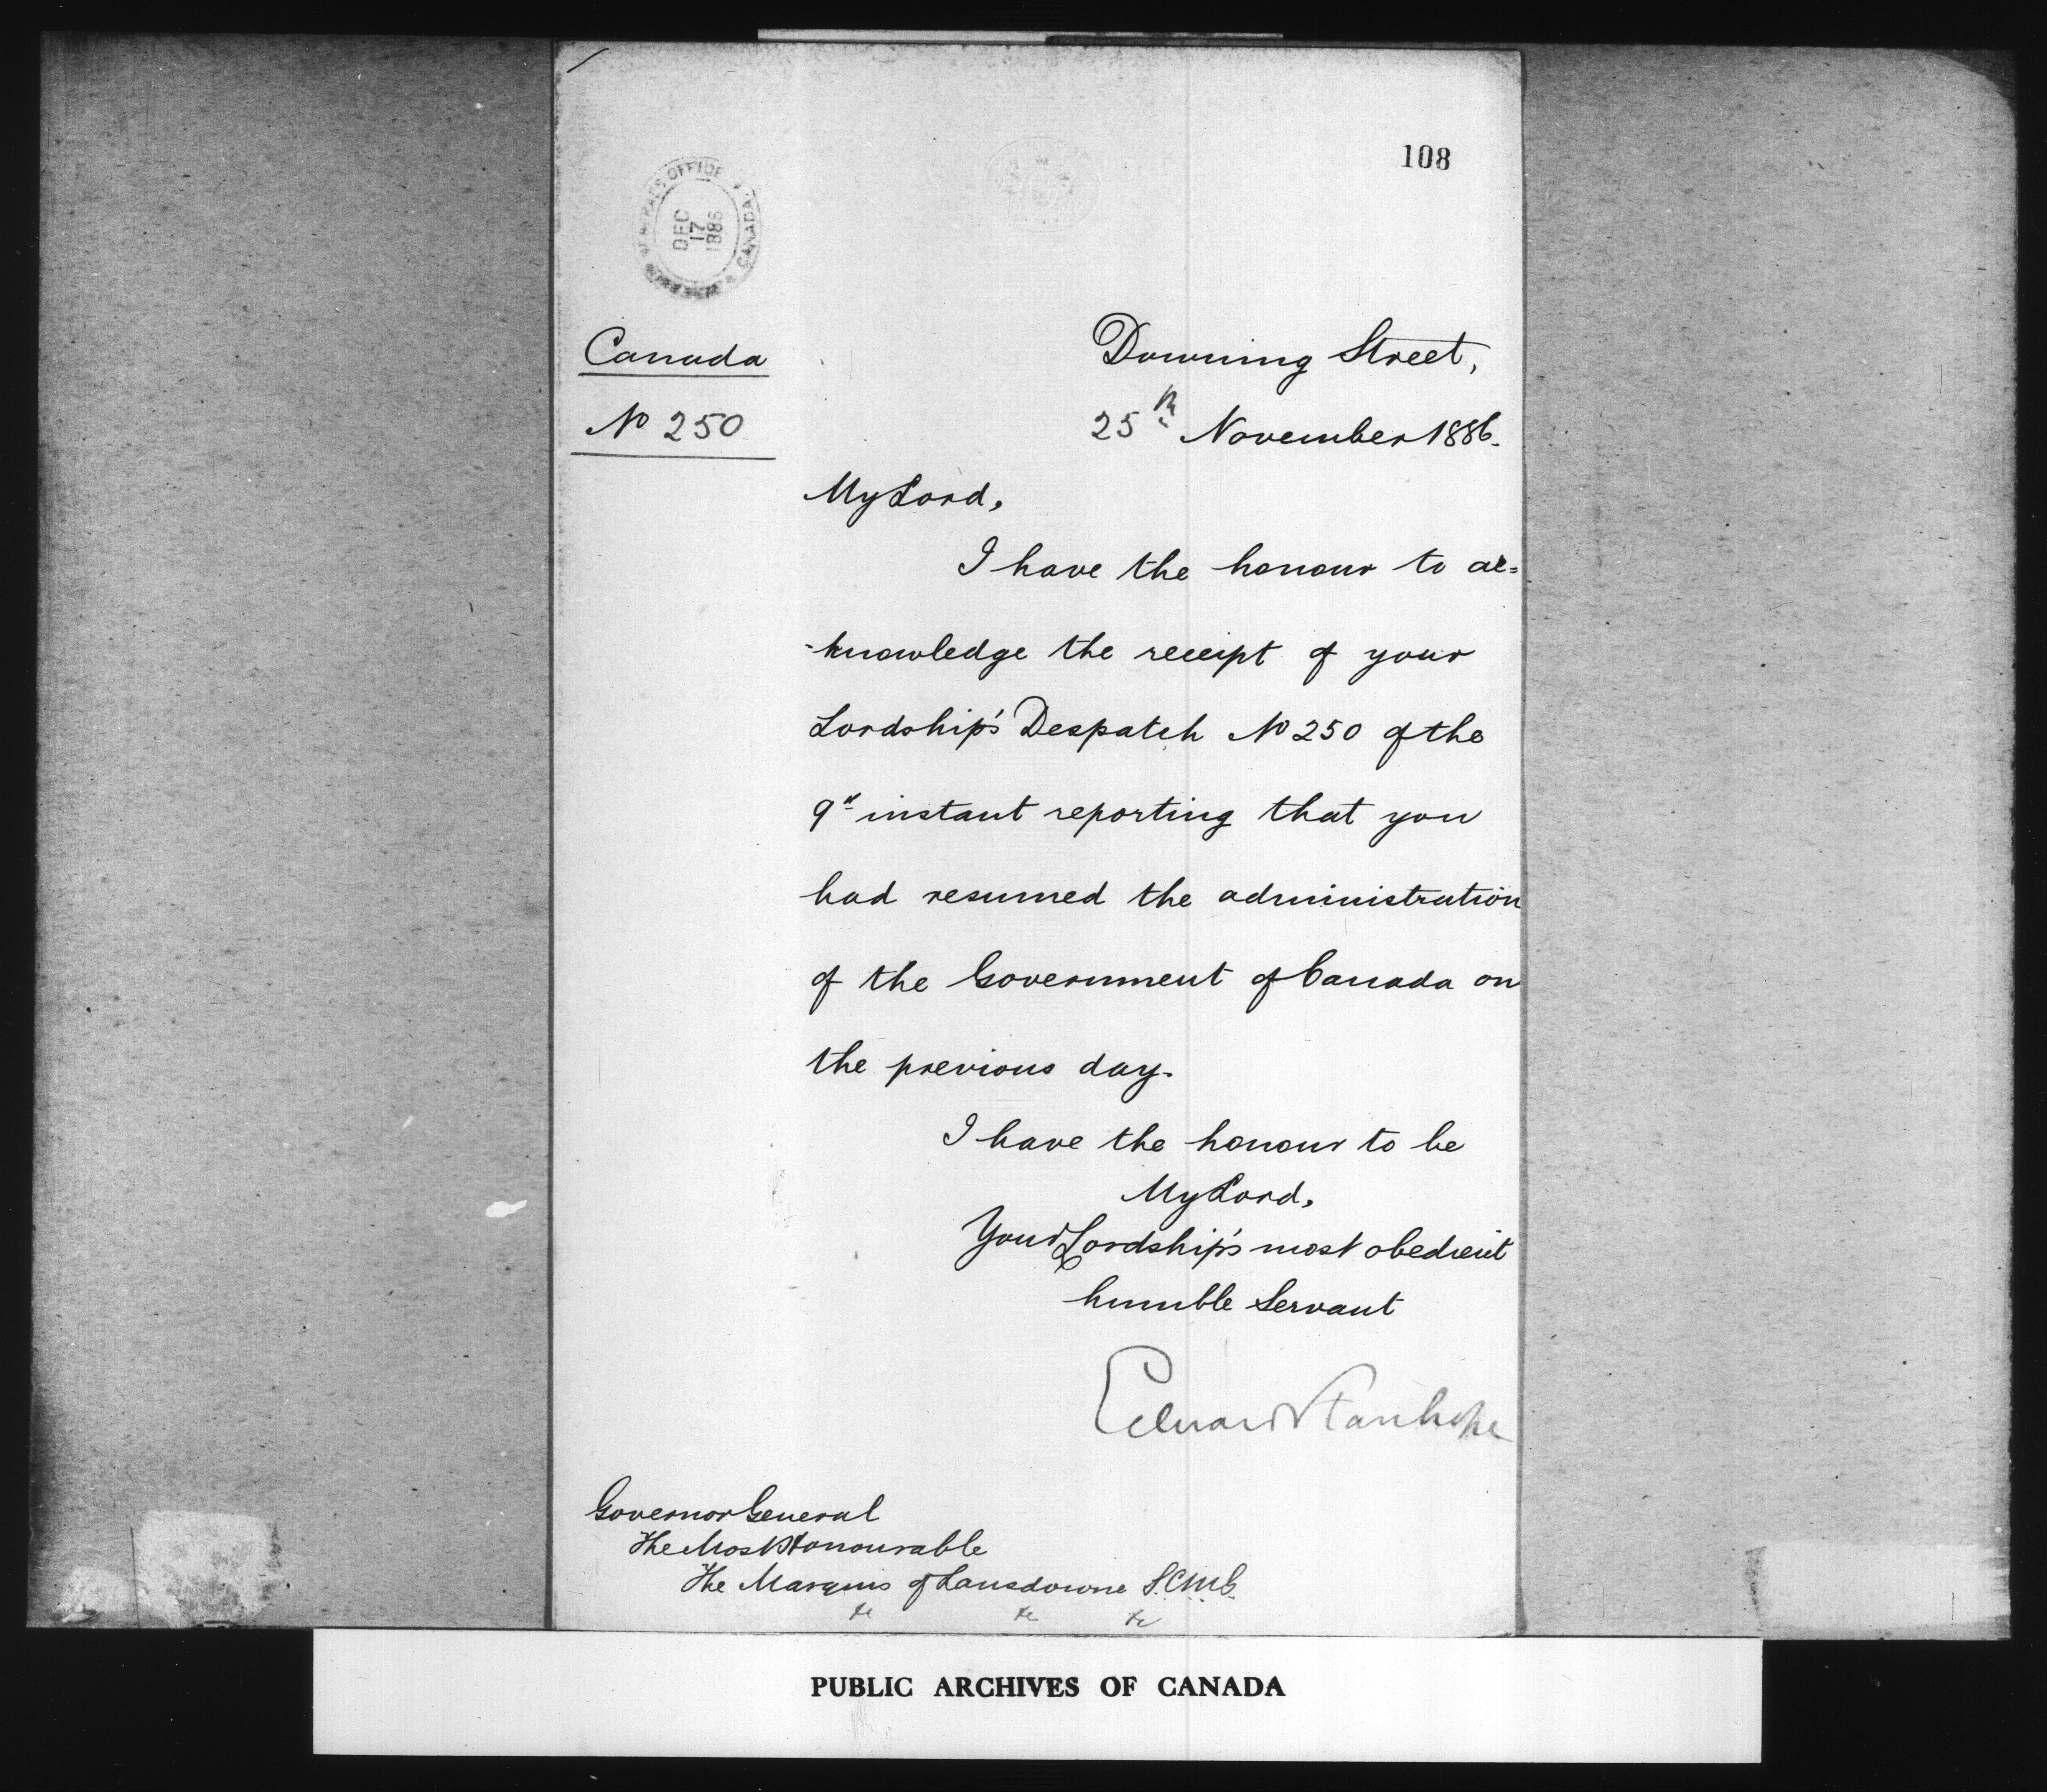 108
GENERAL'S OFFICE
CANADA
DEC
17
1886
Canada
No 250
Downing Street,
25th November 1886.
My Lord,
I have the honour to ac=
-knowledge the receipt of your
Lordship's Despatch No 250 of the
9th instant reporting that you
had resumed the administration
of the Government of Canada on
the previous day.
I have the honour to be
My Lord,
Your Lordship's most obedient
humble Servant
Edward Stanhope
Governor General
The Most Honourable
The Marquis of Lansdowne G.C.M.G.
&c &c &c
PUBLIC ARCHIVES OF CANADA